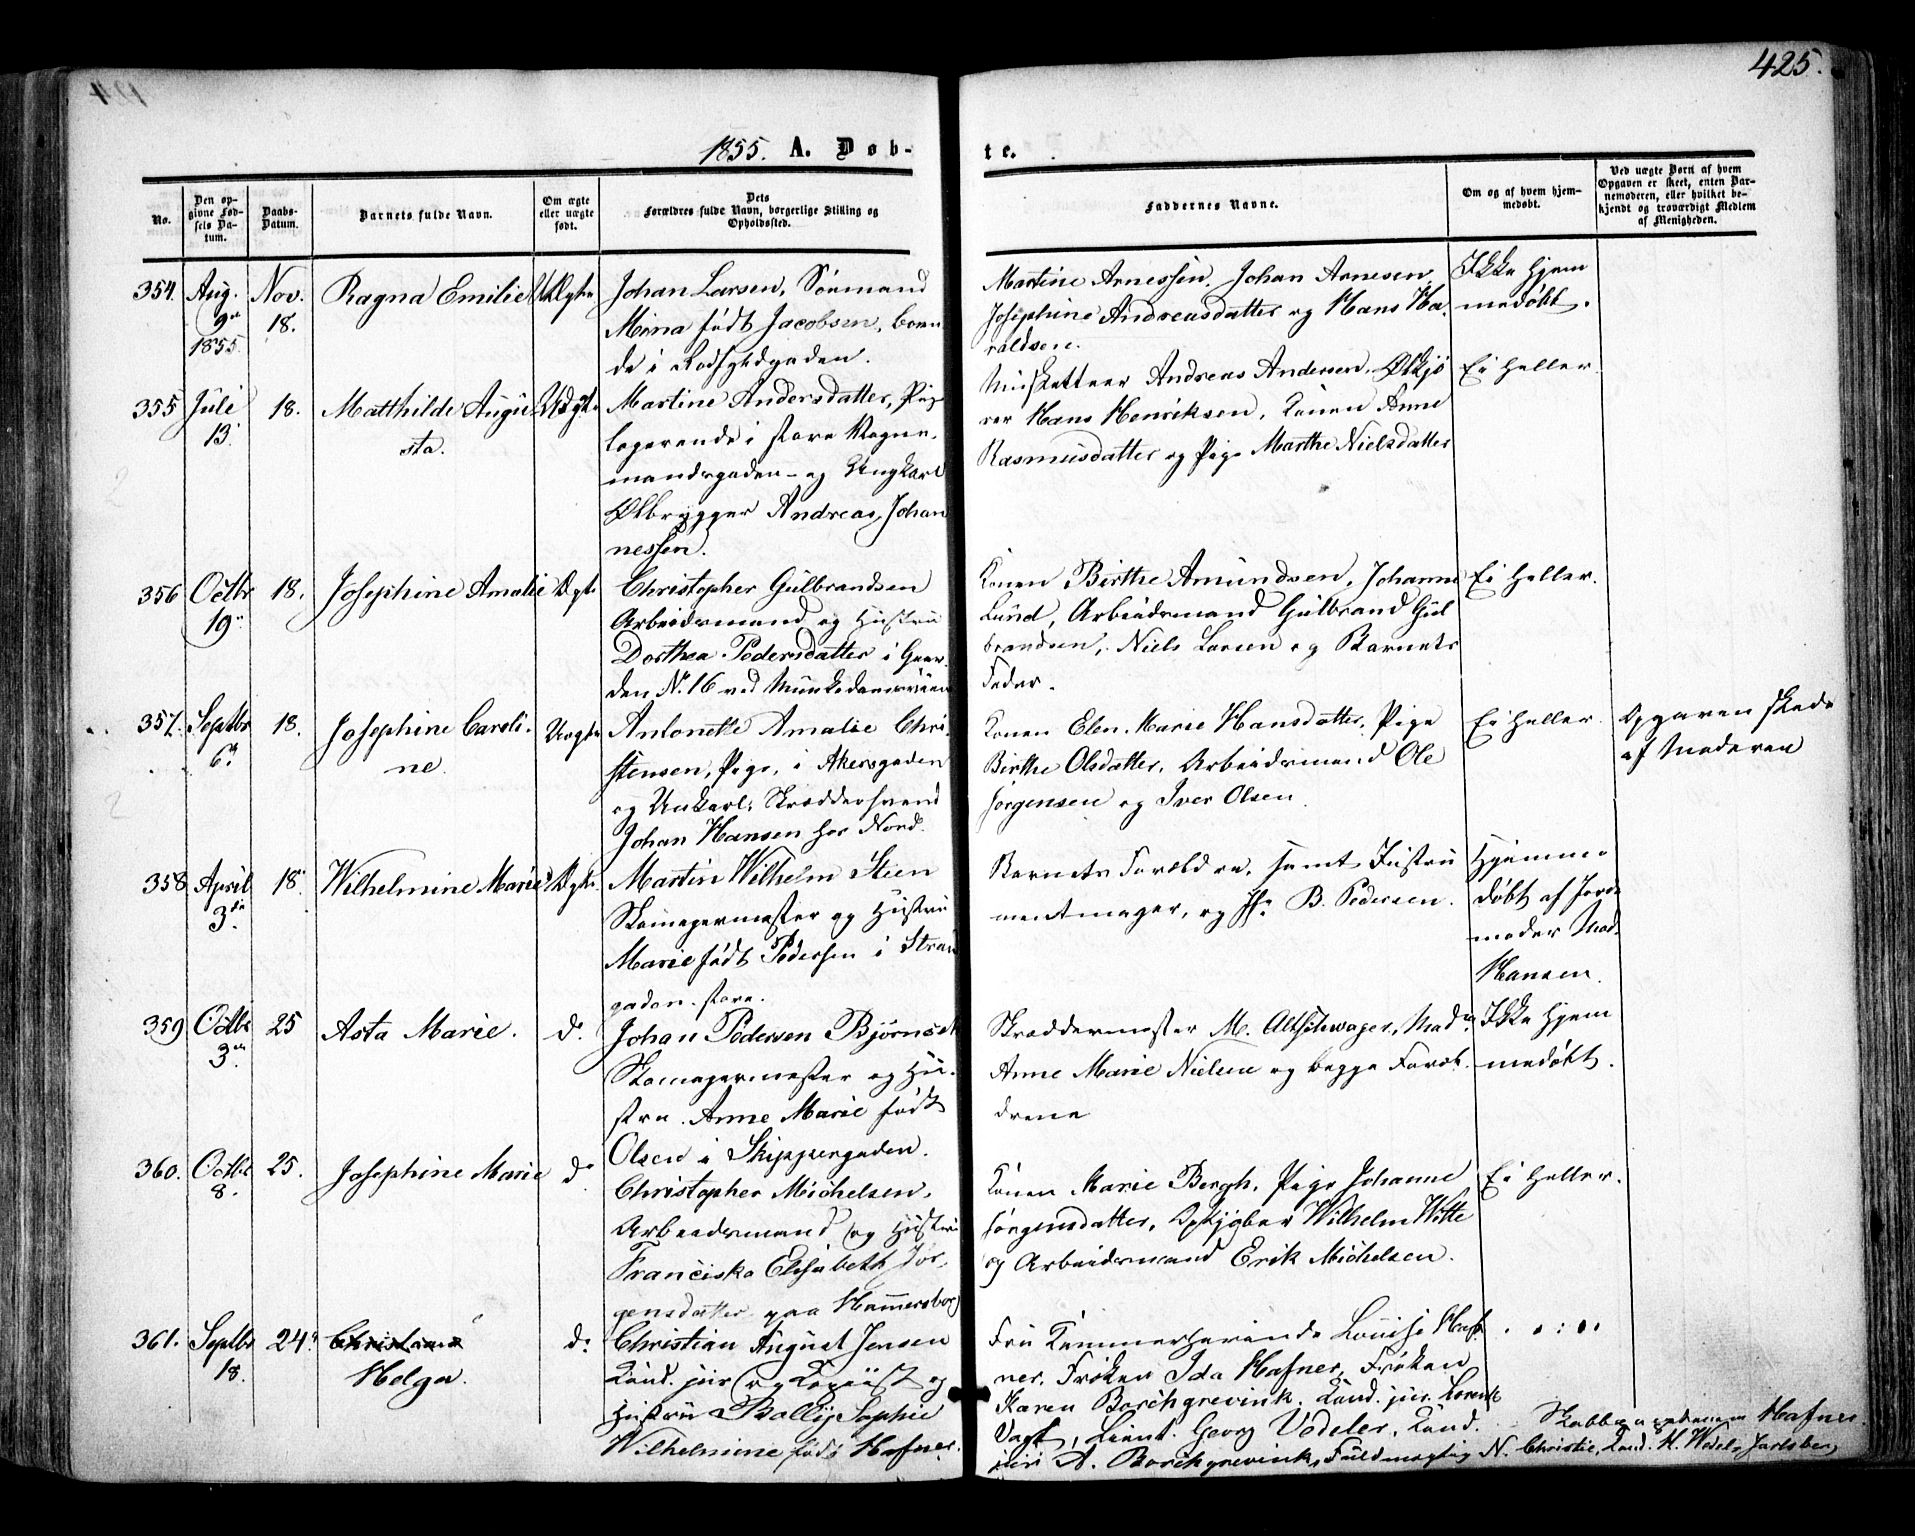 425.
1855. A. Døb-
te.
No.
Den op-
givne Fød-
sels Da-
tum.
Daabs-
Datum.
Barnets fulde Navn.
Om ægte
eller uægte
født.
Dets
Forældres fulde Navn, borgerlige Stilling og
Opholdssted.
Faddernes Navne.
Om og af hvem hjem-
medøbt.
Ved uægte Børn af hvem
Opgaven er skeet, enten Bar-
nemoderen, eller hvilket be-
kjendt og troværdigt Medlem
af Menigheden.
354.
Aug.
9de
1855.
Nov.
18.
Ragna Emilie
Johan Larsen, Sömand
Mina født Jacobsen, boen
de i Rodfyldgaden.
Martine Arnessen, Johan Arnesen
Josephine Andreasdatter og Hans Ha
raldsen.
Ikke hjem
medøbt.
355
Juli
13.
18.
Matthilde Augu
sta.
Uægte
Martine Andersdatter, Pige
logerende i store Vogn-
mandsgaden - og Ungkarl
Ølbrygger Andreas Johan
nessen.
Musketteer Andreas Andersen, Ølkjö
rer Hans Henriksen, Konen Anne
Rasmusdatter og Pige Marthe Nielsdatter
Ei heller.
356
Octbr
19de
18.
Josephine Amalie
Ægte
Christopher Gulbrandsen
Arbeidsmand og Hustru
Dorthea Pedersdatter i Gaar
den No. 16 ved Munkedamsveien
Konen Birthe Amundsen, Johanne
Lund, Arbeidsmand Gulbrand Gul
brandsen, Niels Larsen og Barnets
Fader.
Ei heller.
357.
Septbr
6te
18.
Josephine Caroli-
ne.
Uægte
Antonette Amalie Chri
stensen, Pige, i Akersgaden
og Unkarl, Skræddersvend
Johan Hansen hos Nord.
Konen Elen Marie Hansdatter, Pige
Birthe Olsdatter, Arbeidsmand Ole
Jörgensen og Iver Olsen.
Ei heller.
Opgaven skede
af Moderen
358
April
3die
18.
Wilhelmine Marie
Ægte
Martin Wilhelm Steen
Skomagermester og Hustru
Marie født Pedersen i Strand
gaden store.
Barnets Forældre, samt Instru
mentmager, og Jfr B. Pedersen.
Hjemme
døbt af Jorde
moder Mad.
Hansen.
359
Octbr
3die
25
Asta Marie.
do.
Johan Pedersen Björnset
Skomagermester og Hu-
stru Anne Marie født
Olsen i Skippergaden.
Skræddermester M. Altschwager, Mad.
Anne Marie Nielsen og begge Foræl-
drene
Ikke hjem
medøbt.
360.
Octbr
8.
25.
Josephine Marie
do
Christopher Michelsen,
Arbeidsmand og Hustru
Franciska Elisabeth Jör-
gensdatter paa Hammersborg
Konen Marie Bergh, Pige Johanne
Jörgensdatter, Opkjøber Wilhelm Witte
og Arbeidsmand Erik Michelsen.
Ei heller.
361.
Septbr
18.
24.
Christiane
Helga.
do
Christian August Jensen
Kand. jur. og Kopiist og
Hustru Bolly Sophie
Wilhelmine født Hafner.
Fru Kammerherinde Louise Haf
ner, Frøken Ida Hafner, Frøken
Karen Borchgrevink, Kand. jur. Lorent
Vogt, Lieut. Georg Vedeler, Kand.
juri A. Borchgrevink, Fuldmægtig N. Christie, Kand. H. Wedel-Jarlsberg
Hafner.